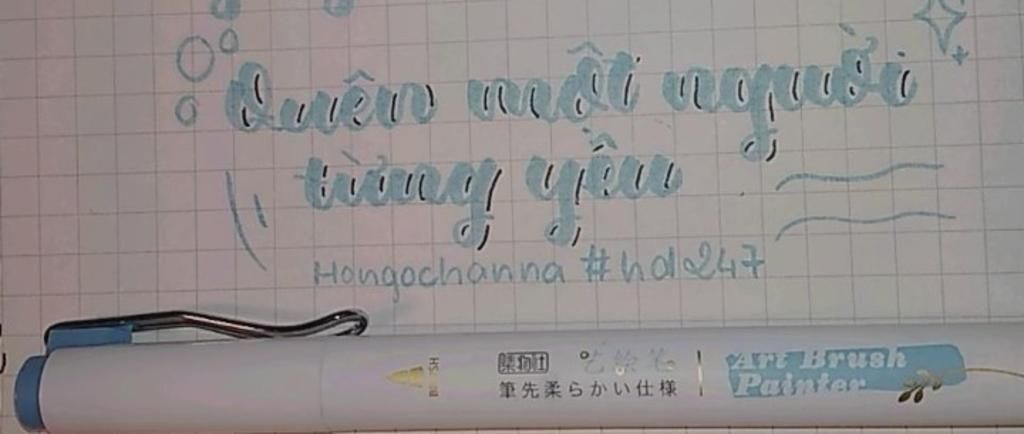 Quên một người
từng yêu
Hongochanna #hd247
艺绘笔
筆先柔らかい仕様
Art Brush
Painter